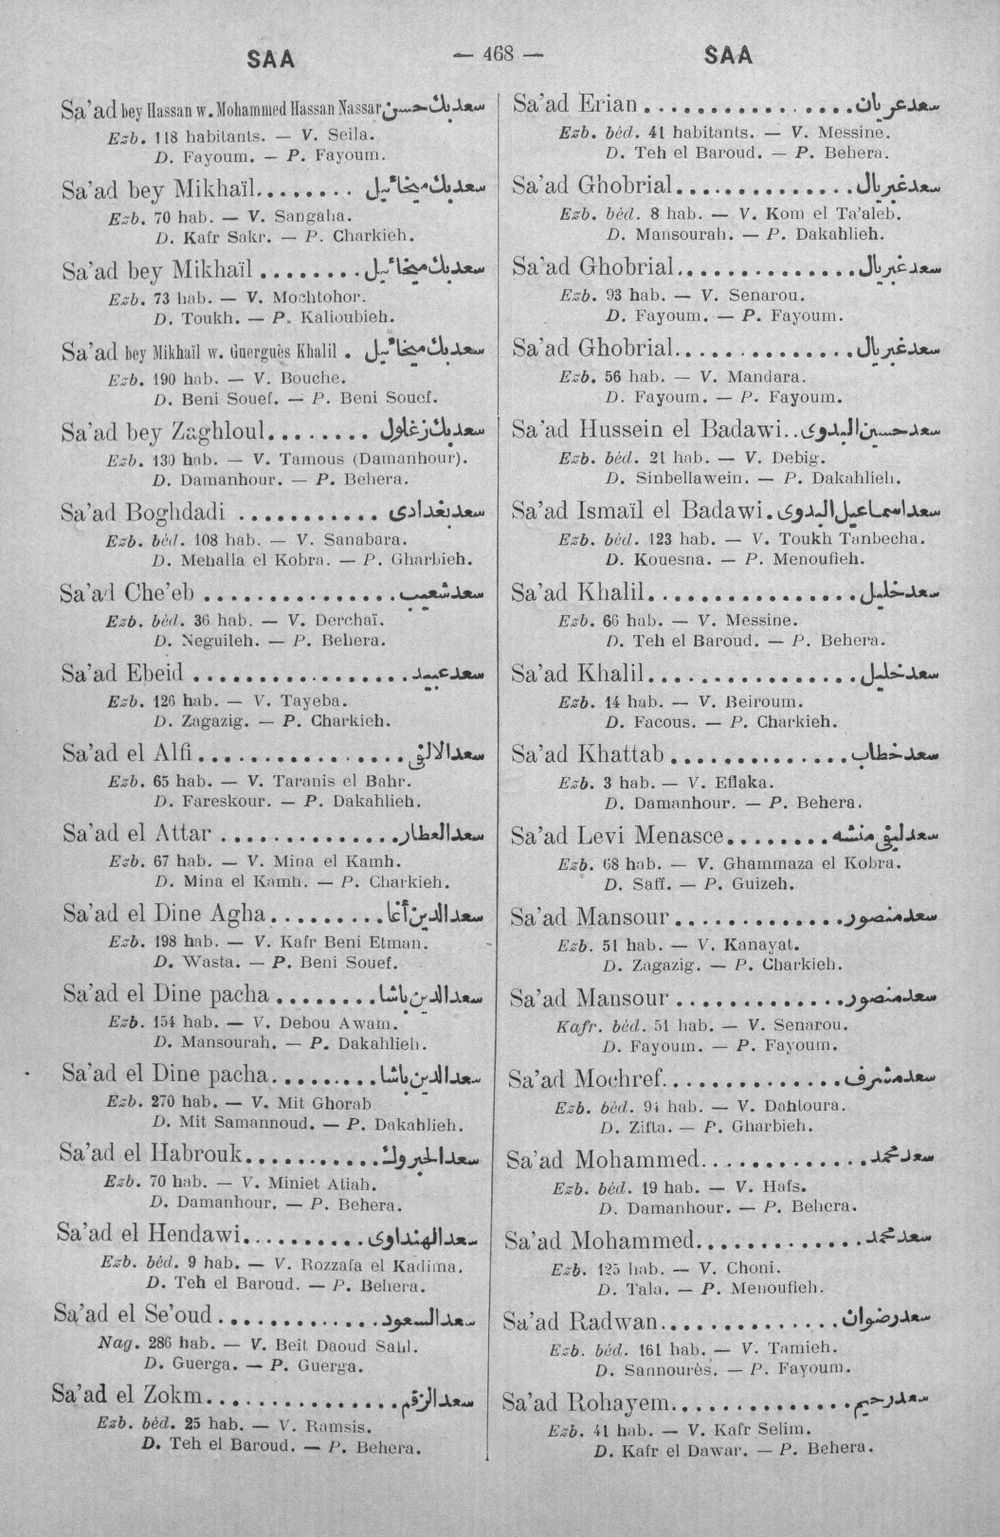 SAA — 468 — SAA
Sa'ad bey Hassan w. Mohammed Hassan Nassar سعد بك حسن
Ezb. 118 habitants. — V. Seila.
D. Fayoum. — P. Fayoum.
Sa'ad bey Mikhaïl........ سعد بك ميخائيل
Ezb. 70 hab. — V. Sangaha.
D. Kafr Sakr. — P. Charkieh.
Sa'ad bey Mikhaïl ........ سعد بك ميخائيل
Ezb. 73 hab. — V. Mochtohor.
D. Toukh. — P. Kalioubieh.
Sa'ad bey Mikhaïl w. Guerguès Khalil . سعد بك ميخائيل
Ezb. 190 hab. — V. Bouche.
D. Beni Souef. — P. Beni Souef.
Sa'ad bey Zaghloul........ سعد بك زغلول
Ezb. 130 hab. — V. Tamous (Damanhour).
D. Damanhour. — P. Behera.
Sa'ad Boghdadi ........... سعد بغدادى
Ezb. bèd. 108 hab. — V. Sanabara.
D. Mehalla el Kobra. — P. Gharbieh.
Sa'ad Che'eb ............... سعد شعيب
Ezb. bèd. 36 hab. — V. Derchaï.
D. Neguileh. — P. Behera.
Sa'ad Ebeid ................ سعد عبيد
Ezb. 126 hab. — V. Tayeba.
D. Zagazig. — P. Charkieh.
Sa'ad el Alfi ................ سعد الالفى
Ezb. 65 hab. — V. Taranis el Bahr.
D. Fareskour. — P. Dakahlieh.
Sa'ad el Attar .............. سعد العطار
Ezb. 67 hab. — V. Mina el Kamh.
D. Mina el Kamh. — P. Charkieh.
Sa'ad el Dine Agha......... سعد الدين أغا
Ezb. 198 hab. — V. Kafr Beni Etman.
D. Wasta. — P. Beni Souef.
Sa'ad el Dine pacha ........ سعد الدين باشا
Ezb. 154 hab. — V. Debou Awam.
D. Mansourah. — P. Dakahlieh.
Sa'ad el Dine pacha......... سعد الدين باشا
Ezb. 270 hab. — V. Mit Ghorab
D. Mit Samannoud. — P. Dakahlieh.
Sa'ad el Habrouk........... سعد الحبروك
Ezb. 70 hab. — V. Miniet Atiah.
D. Damanhour. — P. Behera.
Sa'ad el Hendawi.......... سعد الهنداوى
Ezb. bèd. 9 hab. — V. Rozzafa el Kadima.
D. Teh el Baroud. — P. Behera.
Sa'ad el Se'oud ............. سعد السعود
Nag. 286 hab. — V. Beit Daoud Sahl.
D. Guerga. — P. Guerga.
Sa'ad el Zokm............... سعد الزقم
Ezb. bèd. 25 hab. — V. Ramsis.
D. Teh el Baroud. — P. Behera.
Sa'ad Erian ................ سعد عريان
Ezb. bèd. 41 habitants. — V. Messine.
D. Teh el Baroud. — P. Behera.
Sa'ad Ghobrial.............. سعد غبريال
Ezb. bèd. 8 hab. — V. Kom el Ta'aleb.
D. Mansourah. — P. Dakahlieh.
Sa'ad Ghobrial.............. سعد غبريال
Ezb. 93 hab. — V. Senarou.
D. Fayoum. — P. Fayoum.
Sa'ad Ghobrial.............. سعد غبريال
Ezb. 56 hab. — V. Mandara.
D. Fayoum. — P. Fayoum.
Sa'ad Hussein el Badawi.. سعد حسين البدوى
Ezb. bèd. 21 hab. — V. Debig.
D. Sinbellawein. — P. Dakahlieh.
Sa'ad Ismaïl el Badawi. سعد اسماعيل البدوى
Ezb. bèd. 123 hab. — V. Toukh Tanbecha.
D. Kouesna. — P. Menoufieh.
Sa'ad Khalil................ سعد خليل
Ezb. 66 hab. — V. Messine.
D. Teh el Baroud. — P. Behera.
Sa'ad Khalil................ سعد خليل
Ezb. 14 hab. — V. Beiroum.
D. Facous. — P. Charkieh.
Sa'ad Khattab .............. سعد خطاب
Ezb. 3 hab. — V. Eflaka.
D. Damanhour. — P. Behera.
Sa'ad Levi Menasce........ سعد ليفى منشه
Ezb. 68 hab. — V. Ghammaza el Kobra.
D. Saff. — P. Guizeh.
Sa'ad Mansour ............. سعد منصور
Ezb. 51 hab. — V. Kanayat.
D. Zagazig. — P. Charkieh.
Sa'ad Mansour ............. سعد منصور
Kafr. bèd. 51 hab. — V. Senarou.
D. Fayoum. — P. Fayoum.
Sa'ad Mochref.............. سعد مشرف
Ezb. bèd. 94 hab. — V. Dahtoura.
D. Zifta. — P. Gharbieh.
Sa'ad Mohammed............. سعد محمد
Ezb. bèd. 19 hab. — V. Hafs.
D. Damanhour. — P. Behera.
Sa'ad Mohammed............. سعد محمد
Ezb. 125 hab. — V. Choni.
D. Tala. — P. Menoufieh.
Sa'ad Radwan.............. سعد رضوان
Ezb. bèd. 161 hab. — V. Tamieh.
D. Sannourès. — P. Fayoum.
Sa'ad Rohayem.............. سعد رحيم
Ezb. 41 hab. — V. Kafr Selim.
D. Kafr el Dawar. — P. Behera.